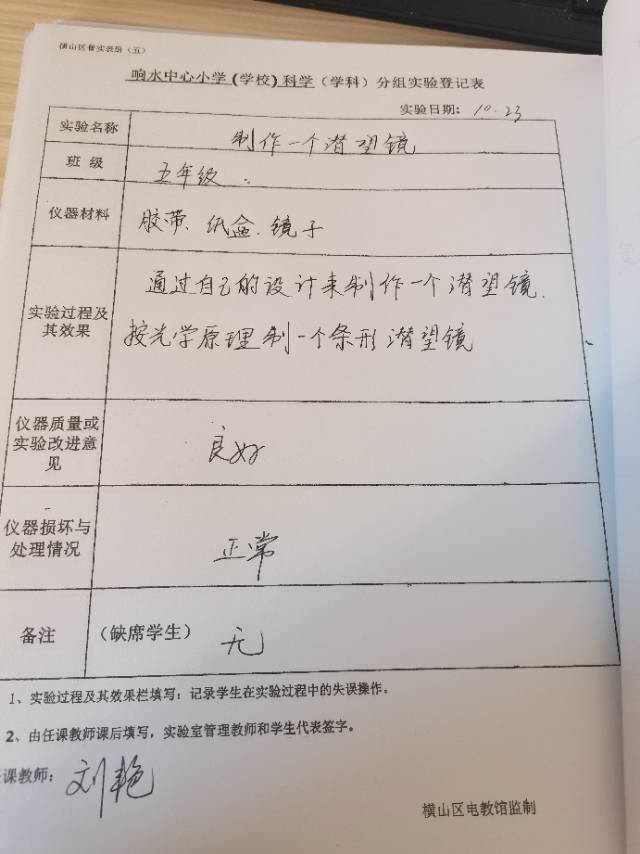 横山区普实表册（五）
响水中心小学(学校)科学（学科）分组实验登记表
实验日期：10.23
实验名称 制作一个潜望镜
班 级 五年级
仪器材料 胶带、纸盒、镜子
实验过程及
其效果
通过自己的设计来制作一个潜望镜.
按光学原理制一个条形潜望镜
仪器质量或
实验改进意
见
良好
仪器损坏与
处理情况
正常
备注 （缺席学生） 无
1、实验过程及其效果栏填写：记录学生在实验过程中的失误操作。
2、由任课教师课后填写，实验室管理教师和学生代表签字。
课教师： 刘艳
横山区电教馆监制